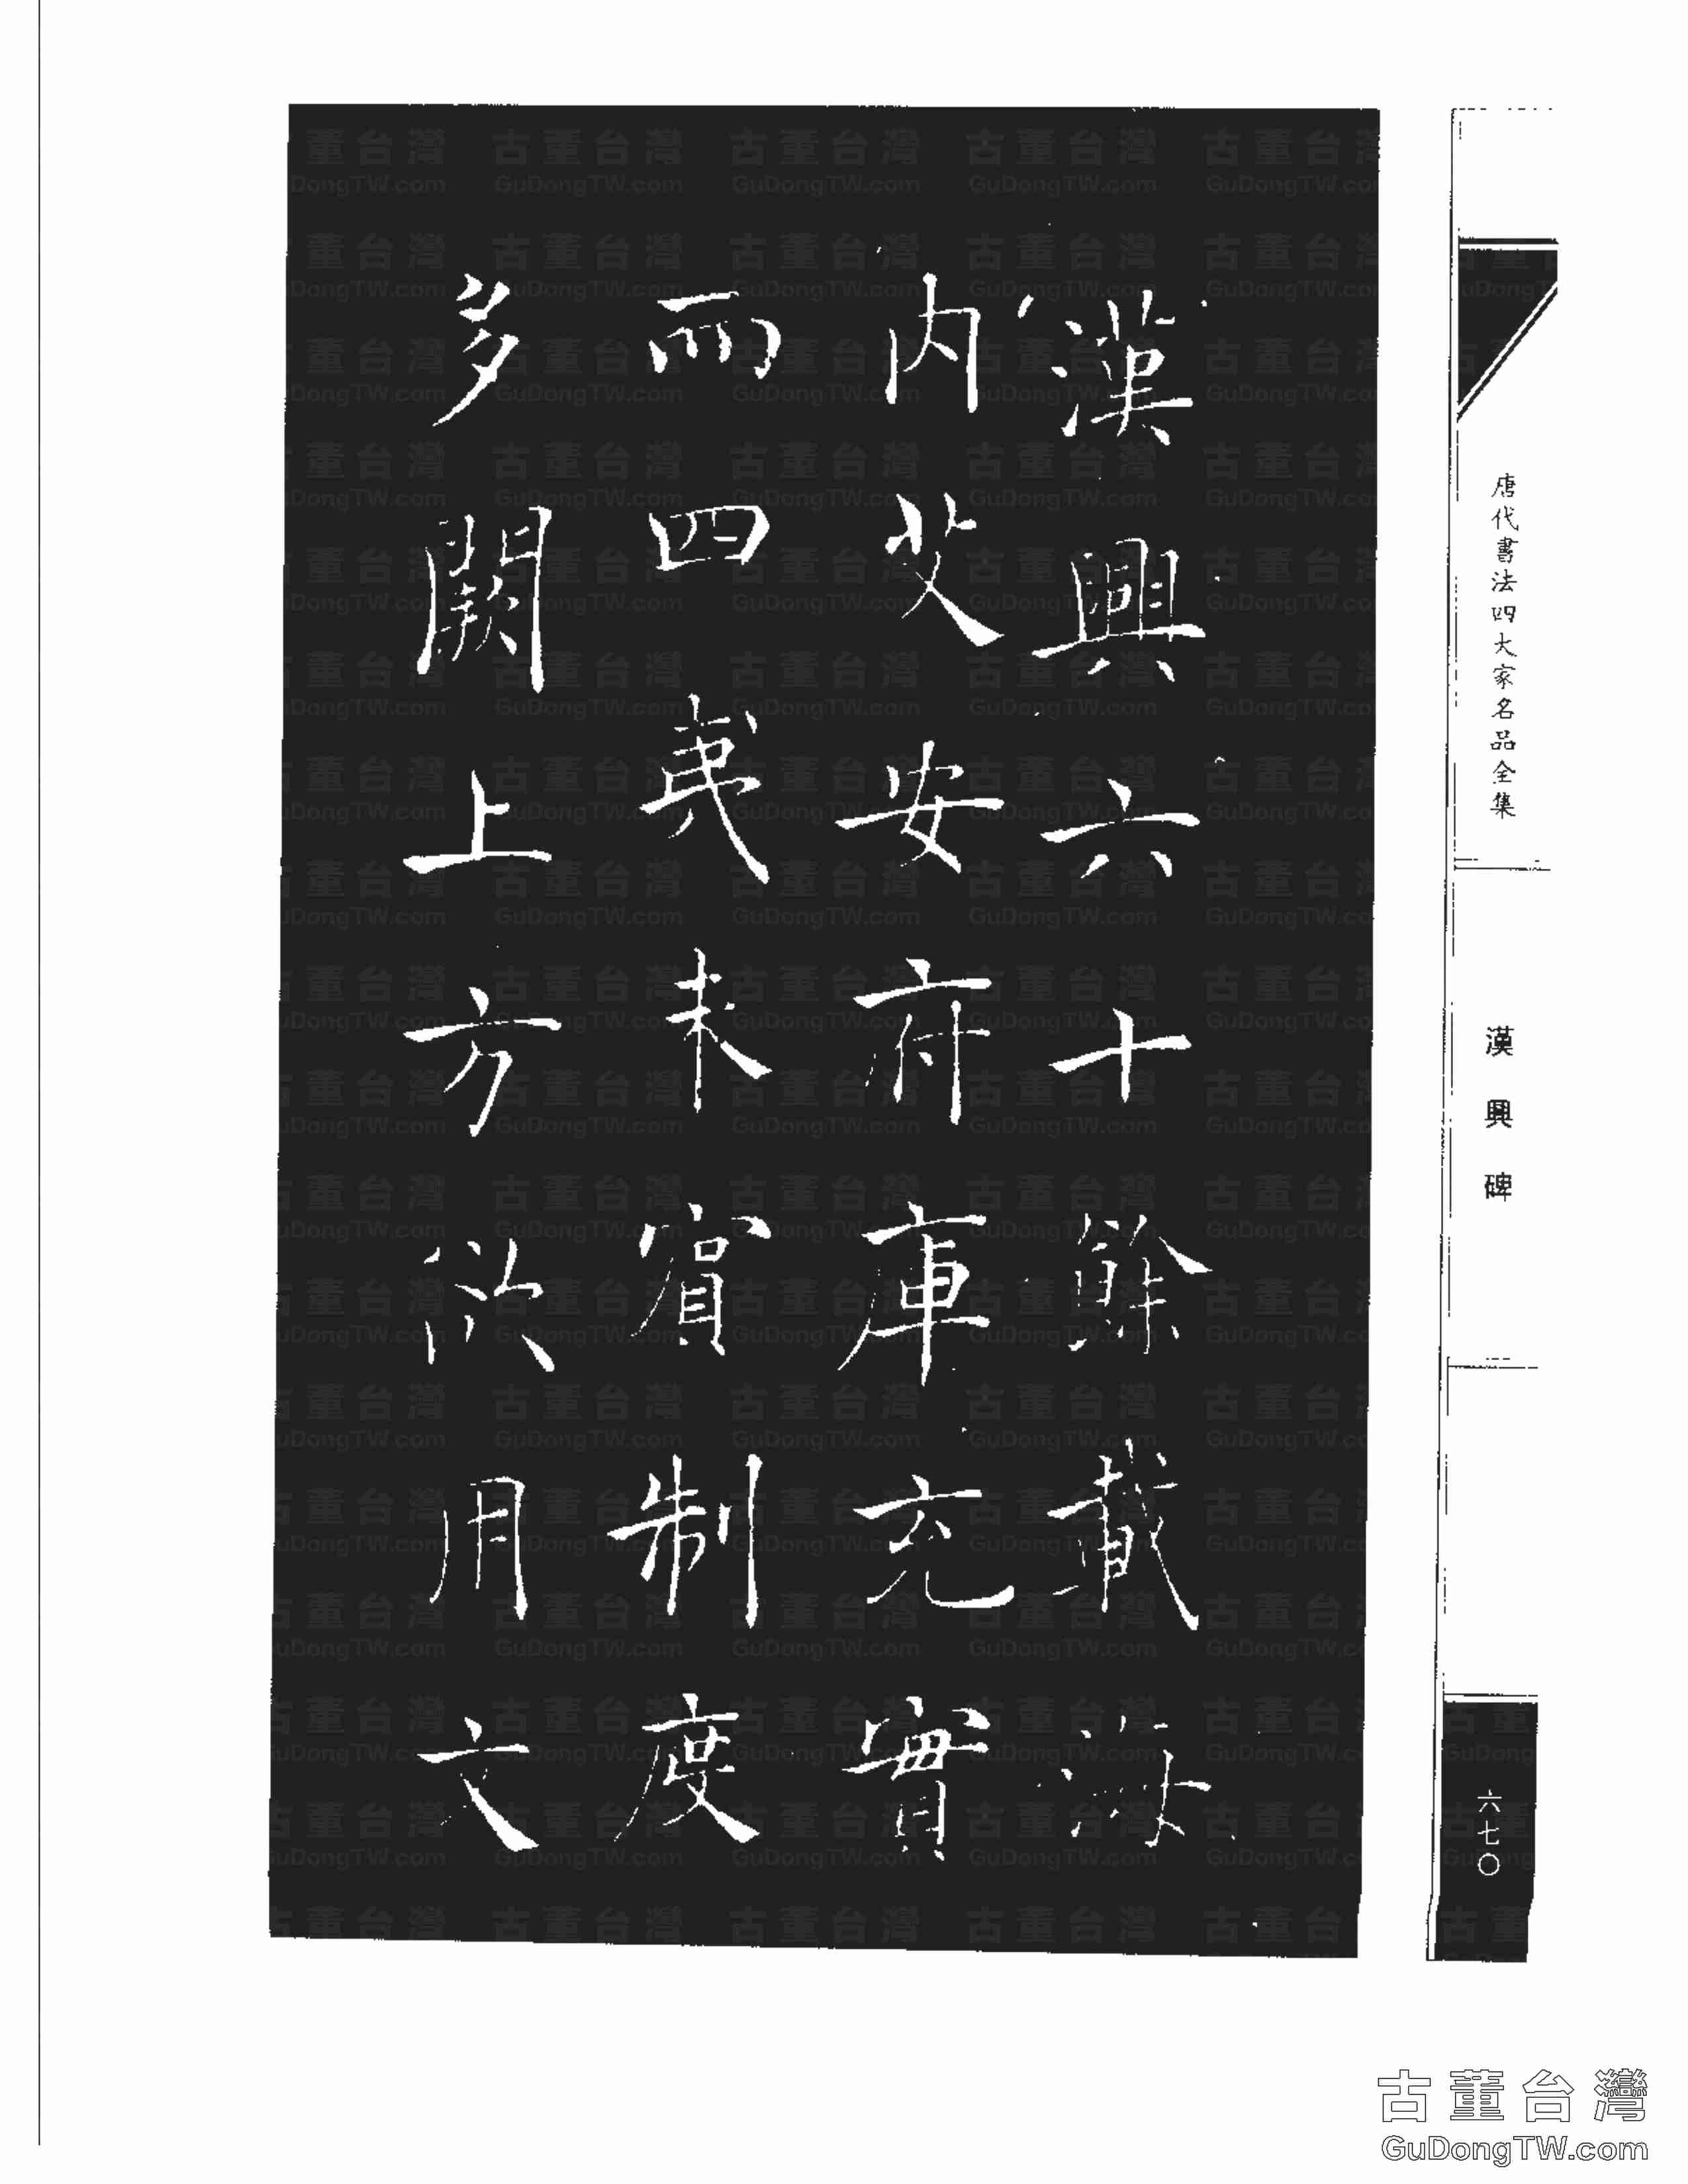 漢興六十餘載海
内艾安府庫充實
而四夷未賓制度
多闕上方欲用文
唐代書法四大家名品全集
漢興碑
六七〇
古董台灣
GuDongTW.com